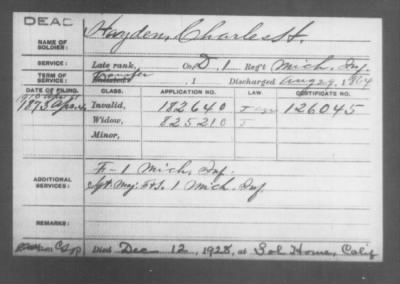 DEAD
NAME OF SOLDIER: Hayden, Charles H.
SERVICE: Late rank, Co. D, 1 Reg't Mich. Inf.
TERM OF SERVICE: Transfer Enlisted , 1 Discharged Aug 29, 1864
DATE OF FILING. CLASS. APPLICATION NO. LAW. CERTIFICATE NO.
1873 Apr. 4 Invalid, 182640 126045
Widow, 825210
Minor,
ADDITIONAL SERVICES: F-1 Mich. Inf.
Sgt. Maj. F&S. 1 Mich. Inf.
REMARKS:
Died Dec 12, 1928, at Sol Home, Calif